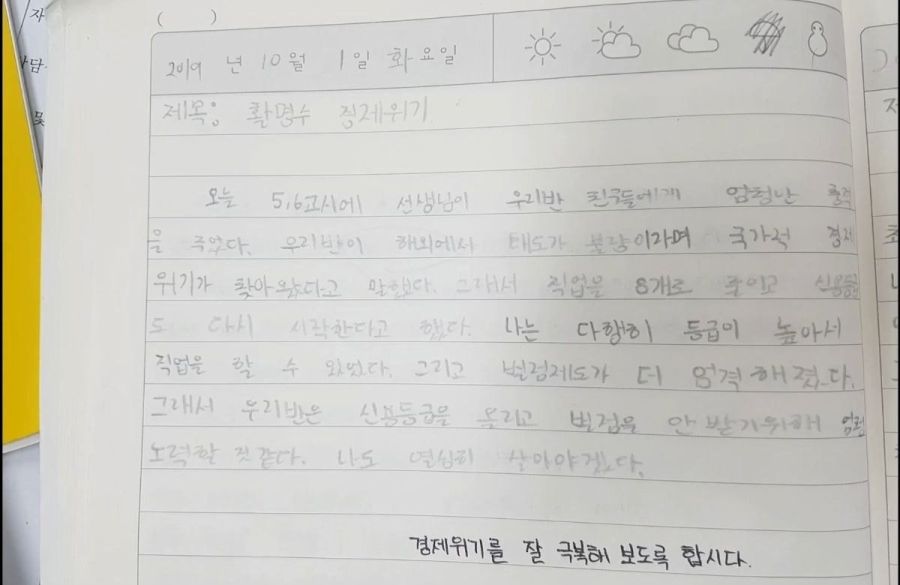 ( )
2019 년 10월 1일 화요일
제목: 활명수 경제위기
오늘 5,6교시에 선생님이 우리반 친구들에게 엄청난 충격
을 주었다. 우리반이 해외에서 태도가 불량이라며 국가적 경제
위기가 찾아왔다고 말했다. 그래서 직업을 8개로 줄이고 신용등급
도 다시 시작한다고 했다. 나는 다행히 등급이 높아서
직업을 할 수 있었다. 그리고 벌점제도가 더 엄격해졌다.
그래서 우리반은 신용등급을 올리고 벌점을 안 받기위해 엄청
노력할 것같다. 나도 열심히 살아야겠다.
경제위기를 잘 극복해 보도록 합시다.